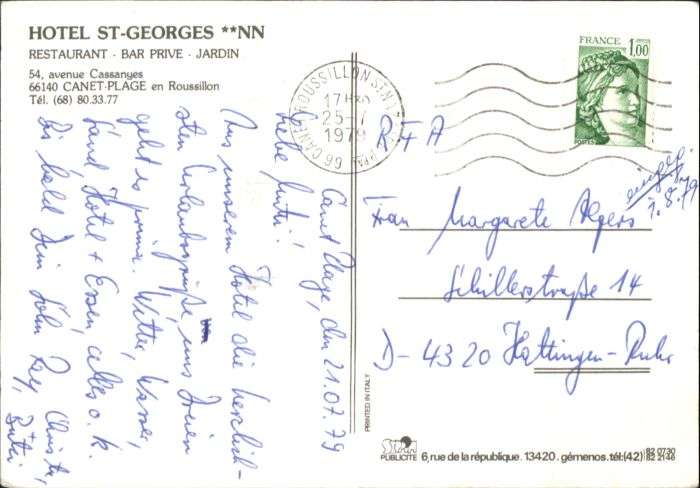 HOTEL ST-GEORGES **NN
RESTAURANT - BAR PRIVE - JARDIN
54, avenue Cassanyes
66140 CANET-PLAGE en Roussillon
Tél. (68) 80.33.77
17 H
25-7
1979
FRANCE
1,00
POSTES
RFA
Canet Plage, den 21.07.79
Liebe Mutti!
Aus unserem Hotel die herzlich-
sten Urlaubsgrüße, uns Dreien
geht es prima. Wetter, Wasser,
Land, Hotel + Essen, alles o.k.
Bis bald Dein Sohn Kay, Christa,
7.8.79
Frau Margarete Algers
Schillerstraße 14
D-4320 Hattingen-Ruhr
PRINTED IN ITALY
PUBLICITE 6, rue de la république. 13420. gémenos. tél:(42) 82 07 30
82 21 46